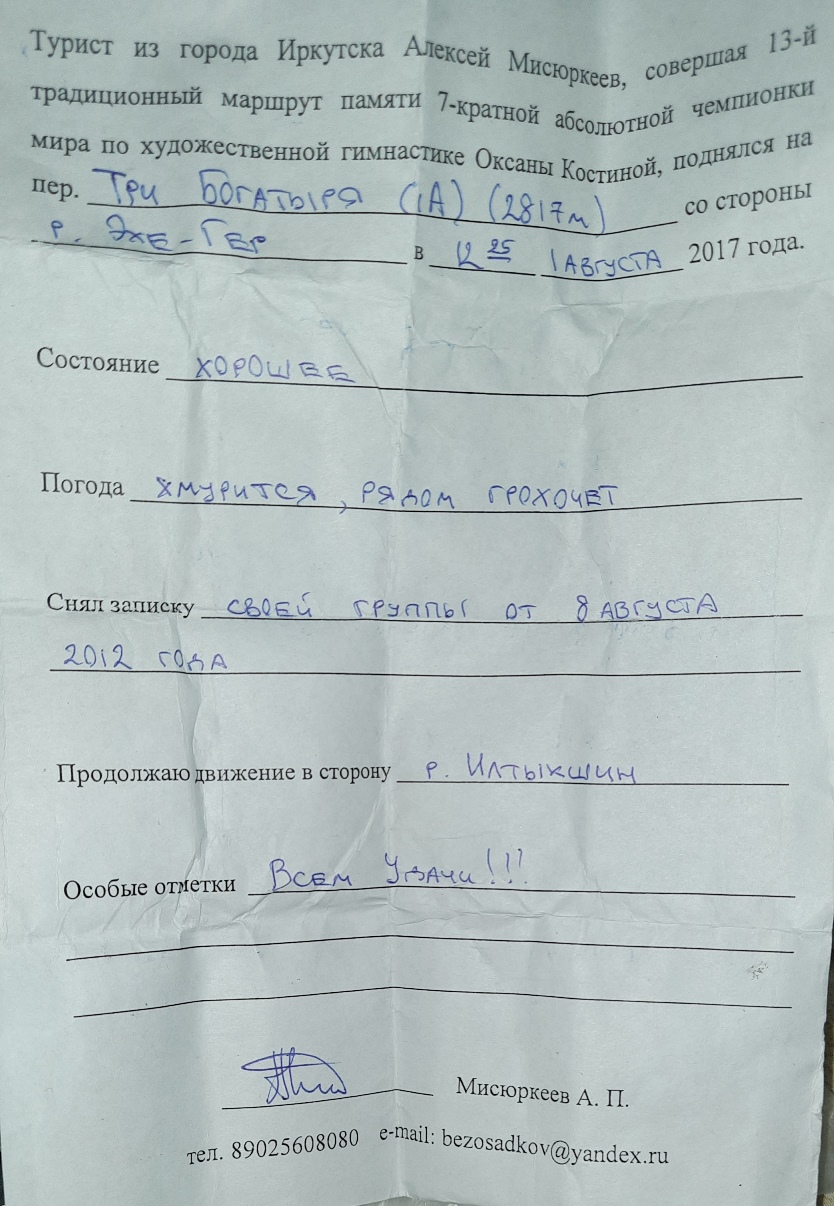 Турист из города Иркутска Алексей Мисюркеев, совершая 13-й
традиционный маршрут памяти 7-кратной абсолютной чемпионки
мира по художественной гимнастике Оксаны Костиной, поднялся на
пер. Три Богатыря (1А) (2817м) со стороны
р. Эхе-Гер в 12 25 1 августа 2017 года.
Состояние хорошее
Погода хмурится, рядом грохочет
Снял записку своей группы от 8 августа
2012 года
Продолжаю движение в сторону р. Илтыкшин
Особые отметки Всем Удачи!!!
Мисюркеев А. П.
тел. 89025608080 e-mail: bezosadkov@yandex.ru